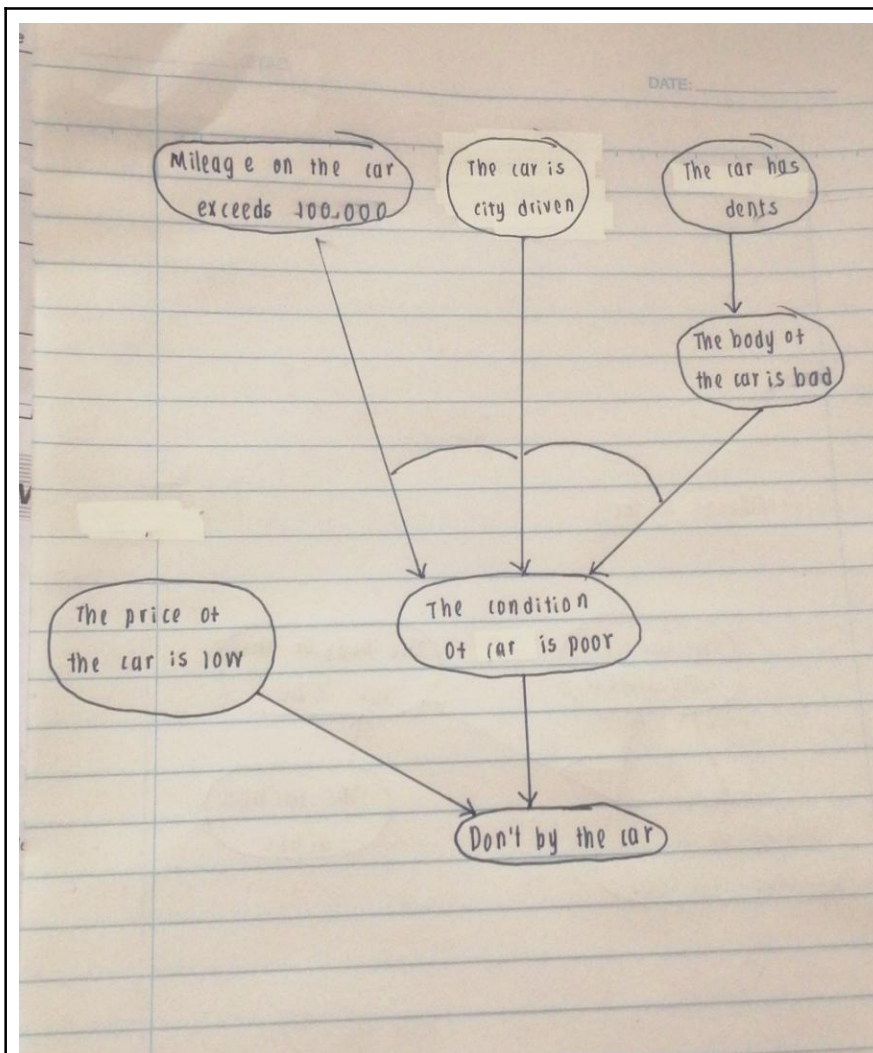 DATE:
Mileage on the car
exceeds 100,000
The car is
city driven
The car has
dents
The body of
the car is bad
The price of
the car is low
The condition
of car is poor
Don't by the car